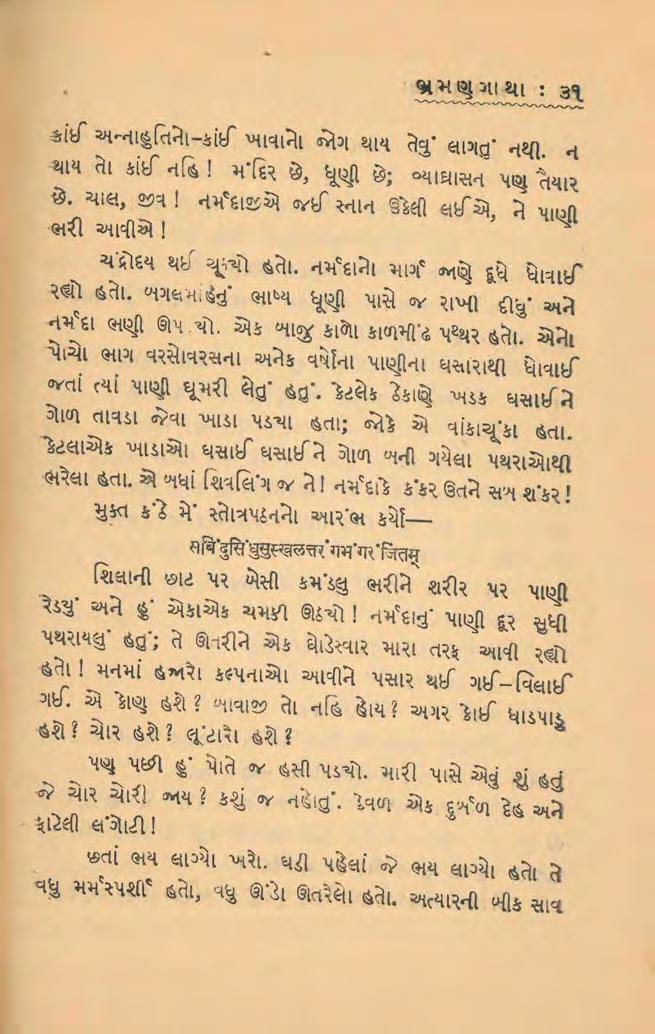 ભ્રમણગાથા : ૩૧
કાંઈ અન્નાહુતિનો–કાંઈ ખાવાનો જોગ થાય તેવું લાગતું નથી. ન
થાય તો કાંઈ નહિ! મંદિર છે, ધૂણી છે; વ્યાઘ્રાસન પણ તૈયાર
છે. ચાલ, જીવ! નર્મદાજીએ જઈ સ્નાન ઉકેલી લઈએ, ને પાણી
ભરી આવીએ!
ચંદ્રોદય થઈ ચૂક્યો હતો. નર્મદાનો માર્ગ જાણે દૂધે ધોવાઈ
રહ્યો હતો. બગલમાંહેનું ભાષ્ય ધૂણી પાસે જ રાખી દીધું અને
નર્મદા ભણી ઊપડ્યો. એક બાજુ કાળો કાળમીંઢ પથ્થર હતો. એનો
પોચો ભાગ વરસોવરસના અનેક વર્ષોના પાણીના ઘસારાથી ધોવાઈ
જતાં ત્યાં પાણી ઘૂમરી લેતું હતું. કેટલેક ઠેકાણે ખડક ઘસાઈને
ગોળ તાવડા જેવા ખાડા પડ્યા હતા; જોકે એ વાંકાચૂંકા હતા.
કેટલાએક ખાડાઓ ઘસાઈ ઘસાઈને ગોળ બની ગયેલા પથરાઓથી
ભરેલા હતા. એ બધાં શિવલિંગ જ ને! નર્મદાકે કંકર ઉતને સબ શંકર!
મુક્ત કંઠે મેં સ્તોત્રપઠનનો આરંભ કર્યો—
सबिंदुसिंधुसुस्खलत्तरंगभंगरंजितम्
શિલાની છાટ પર બેસી કમંડલુ ભરીને શરીર પર પાણી
રેડ્યું અને હું એકાએક ચમકી ઊઠ્યો! નર્મદાનું પાણી દૂર સુધી
પથરાયલું હતું; તે ઊતરીને એક ઘોડેસ્વાર મારા તરફ આવી રહ્યો
હતો! મનમાં હજારો કલ્પનાઓ આવીને પસાર થઈ ગઈ–વિલાઈ
ગઈ. એ કોણ હશે? બાવાજી તો નહિ હોય? અગર કોઈ ધાડપાડુ
હશે? ચોર હશે? લૂંટારો હશે?
પણ પછી હું પોતે જ હસી પડ્યો. મારી પાસે એવું શું હતું
જે ચોર ચોરી જાય? કશું જ નહોતું. કેવળ એક દુર્બળ દેહ અને
ફાટેલી લંગોટી!
છતાં ભય લાગ્યો ખરો. ઘડી પહેલાં જે ભય લાગ્યો હતો તે
વધુ મર્મસ્પર્શી હતો, વધુ ઊંડો ઊતરેલો હતો. અત્યારની બીક સાવ